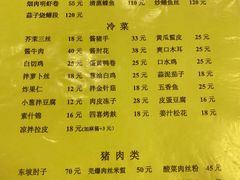 烟肉明虾卷 50元 清蒸鲽鱼 110元 炒鳝鱼丝 120元
茄子烧鳗段 120元
冷菜
芥茉三丝 18元 酱猪手 33元 黄瓜蜇皮 25元
酱牛肉 40元 酱肘花 38元 爽口木耳 25元
白切鸡 25元 蛋黄鸭卷 25元 口水鸡 25元
拌萝卜丝 18元 白斩鸡 25元 蒜泥茄子 18元
炸果仁 12元 拌金针菇 18元 五香鱼 25元
小葱拌豆腐 16元 肉皮冻子 25元 皮蛋豆腐 16元
素什锦 16元 四喜烤麸 18元 姜汁松花 18元
凉拌拉皮 18元(加酱+3元)
猪肉类
东坡肘子 70元 羌爆肉丝米蜇 50元 酸菜肉丝粉 45元